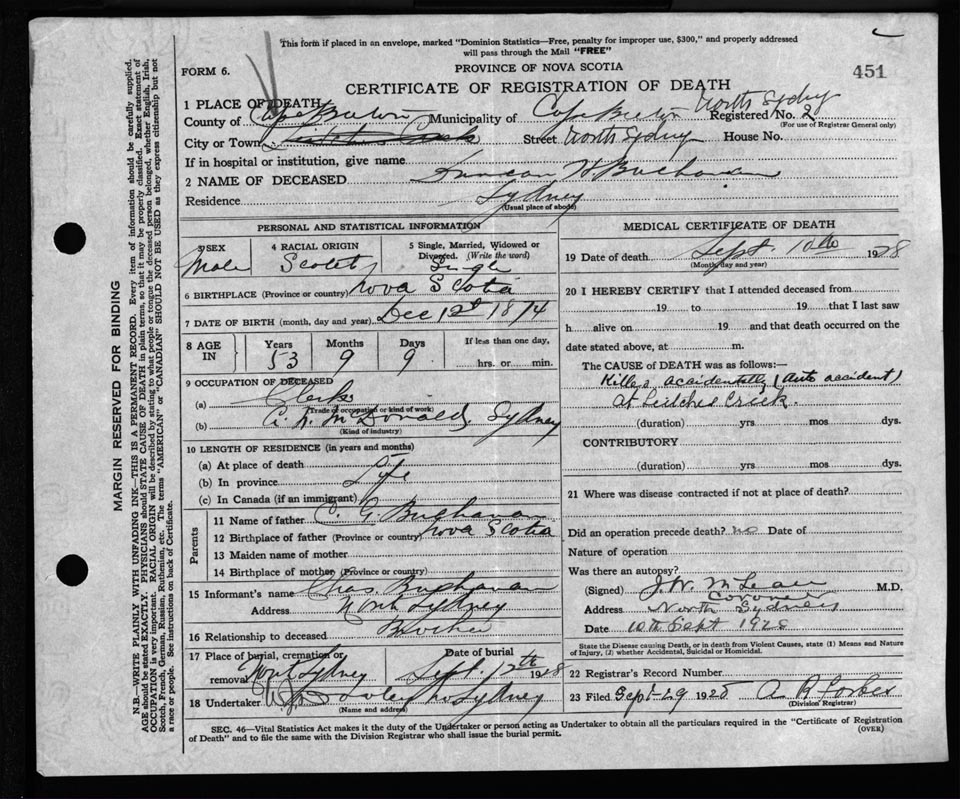 This form if placed in an envelope, marked "Dominion Statistics—Free, penalty for improper use, $300," and properly addressed
will pass through the Mail "FREE"
FORM 6.
PROVINCE OF NOVA SCOTIA
451
CERTIFICATE OF REGISTRATION OF DEATH
1 PLACE OF DEATH
North Sydney
County of Cape Breton Municipality of Cape Breton Registered No. 2
(For use of Registrar General only)
City or Town Street North Sydney House No.
If in hospital or institution, give name
2 NAME OF DECEASED Duncan H Buchanan
Residence Sydney
(Usual place of abode)
PERSONAL AND STATISTICAL INFORMATION
3 SEX
Male
4 RACIAL ORIGIN
Scotch
5 Single, Married, Widowed or
Divorced. (Write the word)
Single
6 BIRTHPLACE (Province or country) Nova Scotia
7 DATE OF BIRTH (month, day and year) Dec 12th 1874
8 AGE
IN
Years
53
Months
9
Days
9
If less than one day,
hrs. or min.
9 OCCUPATION OF DECEASED
(a) Clerk
(Trade of occupation or kind of work)
(b) A. N. McDonald, Sydney
(Kind of industry)
10 LENGTH OF RESIDENCE (in years and months)
(a) At place of death
(b) In province Life
(c) In Canada (if an immigrant)
Parents
11 Name of father C. G. Buchanan
12 Birthplace of father (Province or country) Nova Scotia
13 Maiden name of mother
14 Birthplace of mother (Province or country)
15 Informant's name Chas Buchanan
Address North Sydney
16 Relationship to deceased Brother
17 Place of burial, cremation or
removal North Sydney
Date of burial
Sept. 12th 1928
18 Undertaker N Sydney
(Name and address)
MEDICAL CERTIFICATE OF DEATH
19 Date of death Sept. 10th 1928
(Month, day and year)
20 I HEREBY CERTIFY that I attended deceased from
19 to 19 that I last saw
h alive on 19 and that death occurred on the
date stated above, at m.
The CAUSE OF DEATH was as follows:
Killed accidentally (Auto accident)
at Leitches Creek.
(duration) yrs mos dys.
CONTRIBUTORY
(duration) yrs mos dys.
21 Where was disease contracted if not at place of death?
Did an operation precede death? no Date of
Nature of operation
Was there an autopsy?
(Signed) J. W. McLean M.D.
Coroner
Address North Sydney
Date 10th Sept 1928
State the Disease causing Death, or in death from Violent Causes, state (1) Means and Nature
of Injury, (2) whether Accidental, Suicidal or Homicidal.
22 Registrar's Record Number
23 Filed Sept 29 1928 A R Forbes
(Division Registrar)
SEC. 46—Vital Statistics Act makes it the duty of the Undertaker or person acting as Undertaker to obtain all the particulars required in the "Certificate of Registration
of Death" and to file the same with the Division Registrar who shall issue the burial permit.
(OVER)
MARGIN RESERVED FOR BINDING
N.B.—WRITE PLAINLY WITH UNFADING INK—THIS IS A PERMANENT RECORD. Every item of information should be carefully supplied.
AGE should be stated EXACTLY. PHYSICIANS should STATE CAUSE OF DEATH in plain terms, so that it may be properly classified. Exact statement of
OCCUPATION is very important. RACIAL ORIGIN will be described by stating to what people or tongue the deceased person belonged, whether English, Irish,
Scotch, French, German, Russian, Ruthenian, etc. The terms "AMERICAN" or "CANADIAN" SHOULD NOT BE USED as they express citizenship but not
a race or people. See instructions on back of Certificate.